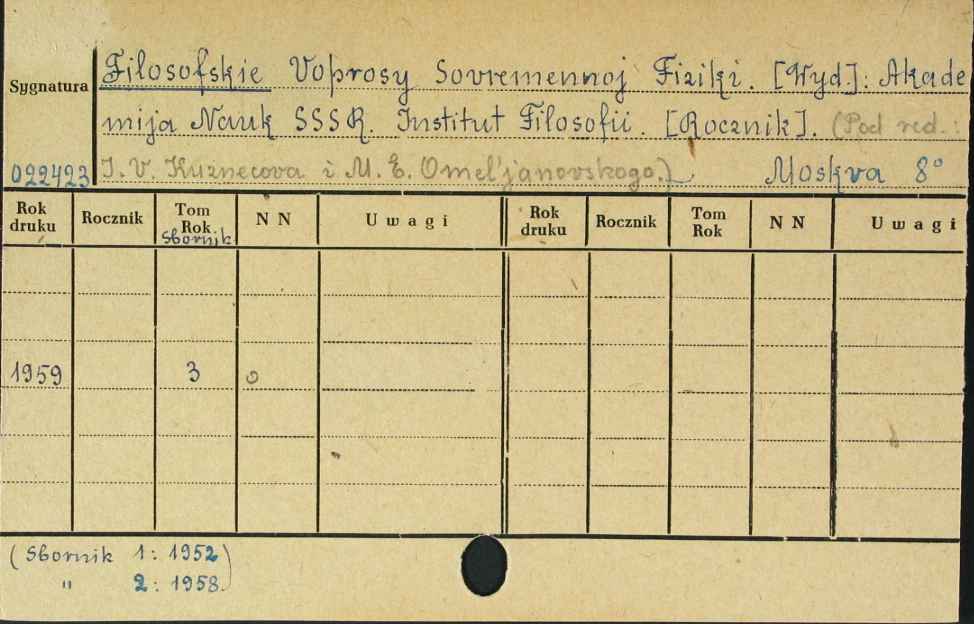 Sygnatura
Filosofskie Voprosy Sovremennoj Fiziki. [Wyd]: Akade
mija Nauk SSSR. Institut Filosofii. [Rocznik]. (Pod red.:
022423 I. V. Kuznecova i M. E. Omel'janovskogo.) Moskva 8°
Rok druku Rocznik Tom Rok N N Uwagi Rok druku Rocznik Tom Rok N N Uwagi
Sbornik
1959 3
(Sbornik 1: 1952)
" 2: 1958.